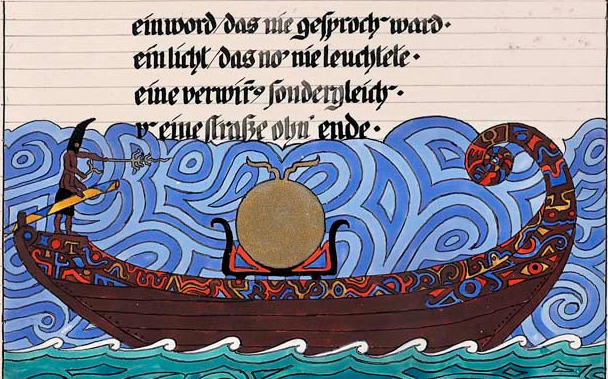 ein word / das nie gesproch ward·
ein licht / das no' nie leuchtete·
eine verwirr' sondergleich·
v' eine straße ohn' ende·